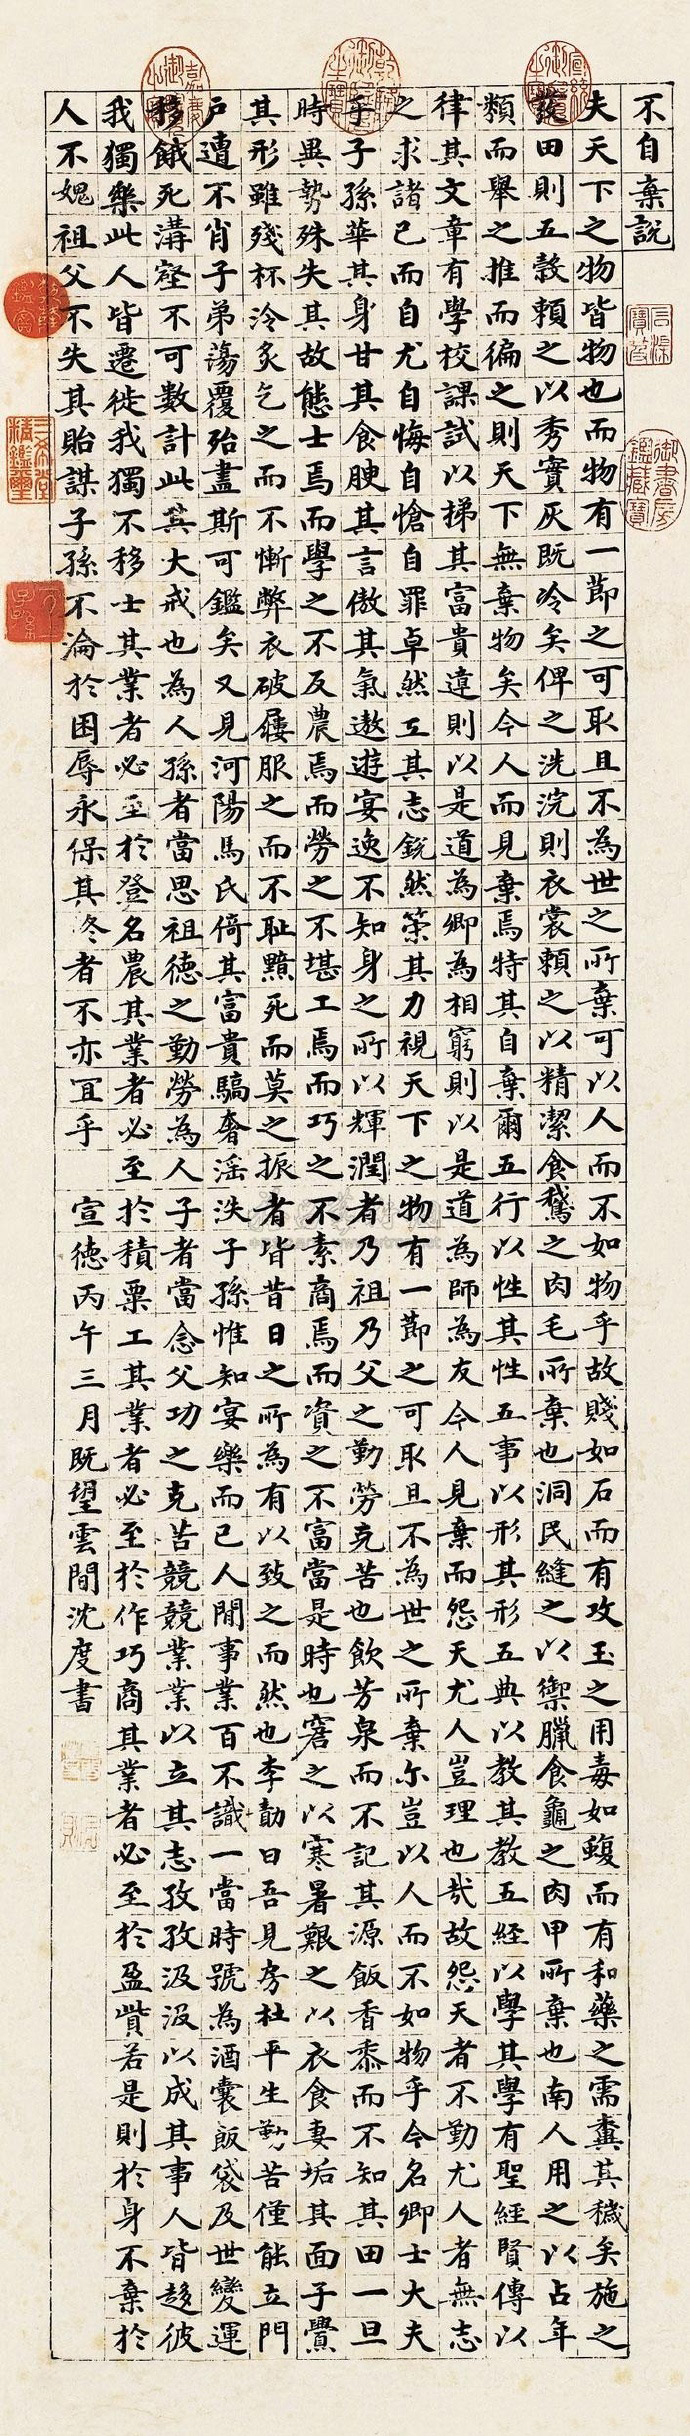 不自棄説
夫天下之物皆物也而物有一節之可取且不為世之所棄可以人而不如物乎故賤如石而有攻玉之用毒如蝮而有和藥之需糞其穢矣施之
發田則五穀賴之以秀實灰既冷矣俾之洗浣則衣裳賴之以精潔食鵞之肉毛所棄也洞民縫之以禦臘食龜之肉甲所棄也南人用之以占年
類而舉之推而徧之則天下無棄物矣今人而見棄焉特其自棄爾五行以性其性五事以形其形五典以教其教五經以學其學有聖經賢傳以
律其文章有學校課試以梯其富貴達則以是道為卿為相窮則以是道為師為友今人見棄而怨天尤人豈理也㢤故怨天者不勤尤人者無志
之求諸己而自尤自悔自愴自罪卓然工其志鋭然策其力視天下之物有一節之可取且不為世之所棄尔豈以人而不如物乎今名卿士大夫
乎子孫華其身甘其食腴其言傲其氣遨遊宴逸不知身之所以輝潤者乃祖乃父之勤勞克苦也飲芳泉而不記其源飯香黍而不知其田一旦
時異勢殊失其故態士焉而學之不反農焉而勞之不堪工焉而巧之不素商焉而資之不富當是時也窘之以寒暑艱之以衣食妻垢其面子釁
其形雖殘杯冷炙乞之而不慚弊衣破屨服之而不耻黯死而莫之振者皆昔日之所為有以致之而然也李勣曰吾見房杜平生勤苦僅能立門
户遭不肖子弟蕩覆殆盡斯可鑑矣又見河陽馬氏倚其富貴驕奢淫泆子孫惟知宴樂而已人間事業百不識一當時號為酒囊飯袋及世變運
移餓死溝壑不可數計此其大戒也為人孫者當思祖德之勤勞為人子者當念父功之克苦競競業業以立其志孜孜汲汲以成其事人皆趍彼
我獨樂此人皆遷徙我獨不移士其業者必至於登名農其業者必至於積粟工其業者必至於作巧商其業者必至於盈貲若是則於身不棄於
人不媿祖父不失其貽謀子孫不淪於困辱永保其冬者不亦宜乎　宣德丙午三月既望雲間沈度書
三希堂精鑑璽
御書房鑑藏寶
石渠寶笈